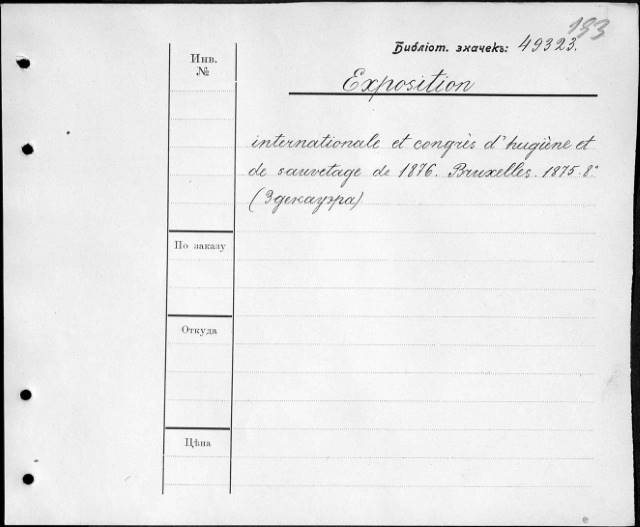 193
Библіот. значекъ: 49323.
Инв.
№
Exposition
internationale et congrès d'hugiène et
de sauvetage de 1876. Bruxelles. 1875. 8°
(Эдекауэра)
По заказу
Откуда
Цѣна